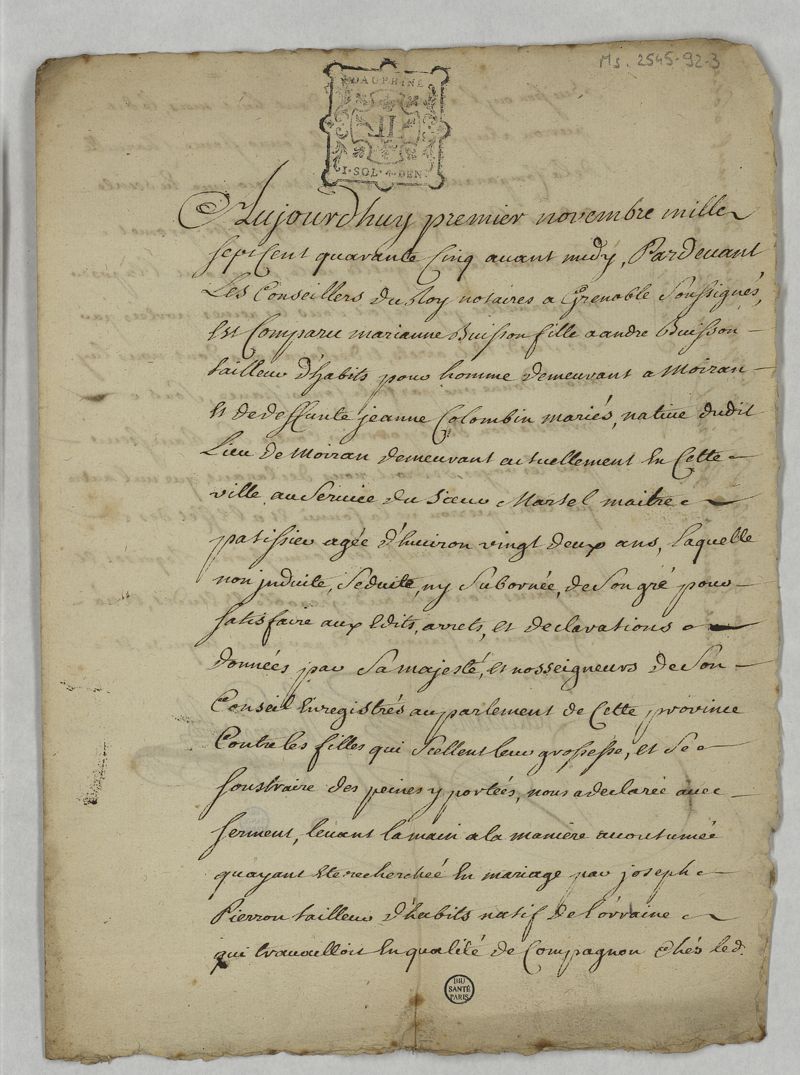 Ms. 2545-92-3
DAUPHINÉ
II
1·SOL·4·DEN·
Aujourdhuy premier novembre mille
sept Cent quarante Cinq avant midy, Pardevant
Les Conseillers du Roy notaires a Grenoble Soussignés,
est Comparu marianne Buisson fille a andre Buisson
tailleur d'habits pour homme demeurant a Moiran
et de deffunte jeanne Colombin mariés, native dudit
Lieu de Moiran demeurant actuellement En Cette
ville au Service du Sieur Martel maitre
patissier agée d'Environ vingt deux ans, Laquelle
non jnduite, Seduite, ny Subornée, de Son gré pour
satisfaire aux Edits, arrets, et declarations
données par Sa majesté, et nosseigneurs de Son
Conseil Enregistrés au parlement de Cette province
Contre les filles qui Scellent leur grossesse, et Se
soustraire des peines y portées, nous a declaréé avec
serment, levant la main a la maniere accoutumée
quayant Eté recherchéé En mariage par joseph
Pierron tailleur d'habits natif de Lorraine
qui travailloit En qualité de Compagnon chés led.
BIU
SANTÉ
PARIS